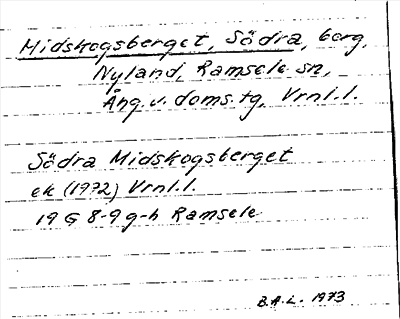 Midskogsberget, Södra, berg,
Nyland, Ramsele sn,
Ång. v. doms. tg, Vrnl. l.
Södra Midskogsberget
ek (1972) Vrnl. l.
19 G 8-9 g-h Ramsele
B.A.L. 1973